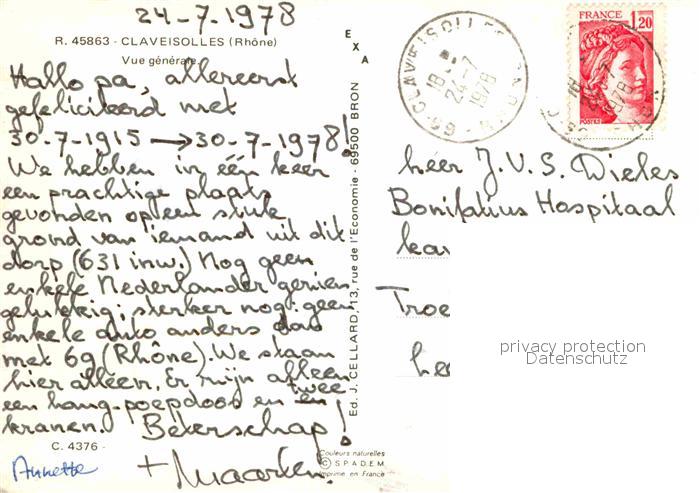 24-7-1978
R. 45863 - CLAVEISOLLES (Rhône)
Vue générale
Hallo pa, allereerst
gefeliciteerd met
30-7-1915 → 30-7-1978!
We hebben in één keer
een prachtige plaats
gevonden op een stuk
grond van iemand uit dit
dorp (631 inw.) Nog geen
enkele Nederlander gezien
gelukkig; sterker nog: geen
enkele auto anders dan
met 69 (Rhône). We staan
hier alleen. Er zijn alleen
een hang-poepdoos en twee
kranen. Beterschap!
C. 4376 -
Annette
+ Maarten.
EXA
Ed. J. CELLARD, 13, rue de l'Economie - 69500 BRON
Couleurs naturelles
© S.P.A.D.E.M.
Imprimé en France
CLAVEISOLLES
18
24-7
1978
69
FRANCE
1,20
POSTES
heer J.V.S. Dieles
Bonifatius Hospitaal
Troe
privacy protection
Datenschutz